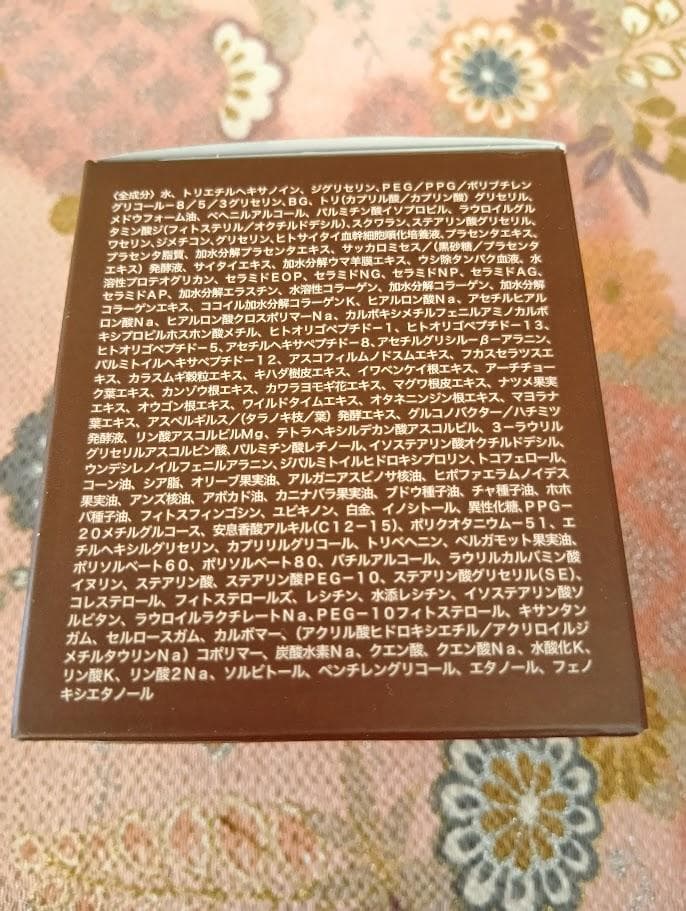 〈全成分〉水、トリエチルヘキサノイン、ジグリセリン、PEG/PPG/ポリブチレン
グリコール-8/5/3グリセリン、BG、トリ(カプリル酸/カプリン酸)グリセリル、
メドウフォーム油、ベヘニルアルコール、パルミチン酸イソプロピル、ラウロイルグル
タミン酸ジ(フィトステリル/オクチルドデシル)、スクワラン、ステアリン酸グリセリル、
ワセリン、ジメチコン、グリセリン、ヒトサイタイ血幹細胞順化培養液、プラセンタエキス、
プラセンタ脂質、加水分解プラセンタエキス、サッカロミセス/(黒砂糖/プラセンタ
エキス)発酵液、サイタイエキス、加水分解ウマ羊膜エキス、ウシ除タンパク血液、水
溶性プロテオグリカン、セラミドEOP、セラミドNG、セラミドNP、セラミドAG、
セラミドAP、加水分解エラスチン、水溶性コラーゲン、加水分解コラーゲン、加水分解
コラーゲンエキス、ココイル加水分解コラーゲンK、ヒアルロン酸Na、アセチルヒアル
ロン酸Na、ヒアルロン酸クロスポリマーNa、カルボキシメチルフェニルアミノカルボ
キシプロピルホスホン酸メチル、ヒトオリゴペプチド-1、ヒトオリゴペプチド-13、
ヒトオリゴペプチド-5、アセチルヘキサペプチド-8、アセチルグリシルーβ-アラニン、
パルミトイルヘキサペプチド-12、アスコフィルムノドスムエキス、フカスセラツスエ
キス、カラスムギ穀粒エキス、キハダ樹皮エキス、イワベンケイ根エキス、アーチチョー
ク葉エキス、カンゾウ根エキス、カワラヨモギ花エキス、マグワ根皮エキス、ナツメ果実
エキス、オウゴン根エキス、ワイルドタイムエキス、オタネニンジン根エキス、マヨラナ
葉エキス、アスペルギルス/(タラノキ枝/葉)発酵エキス、グルコノバクター/ハチミツ
発酵液、リン酸アスコルビルMg、テトラヘキシルデカン酸アスコルビル、3-ラウリル
グリセリルアスコルビン酸、パルミチン酸レチノール、イソステアリン酸オクチルドデシル、
ウンデシレノイルフェニルアラニン、ジパルミトイルヒドロキシプロリン、トコフェロール、
コーン油、シア脂、オリーブ果実油、アルガニアスピノサ核油、ヒポファエラムノイデス
果実油、アンズ核油、アボカド油、カニナバラ果実油、ブドウ種子油、チャ種子油、ホホ
バ種子油、フィトスフィンゴシン、ユビキノン、白金、イノシトール、異性化糖、PPG-
20メチルグルコース、安息香酸アルキル(C12-15)、ポリクオタニウム-51、エ
チルヘキシルグリセリン、カプリリルグリコール、トリベヘニン、ベルガモット果実油、
ポリソルベート60、ポリソルベート80、バチルアルコール、ラウリルカルバミン酸
イヌリン、ステアリン酸、ステアリン酸PEG-10、ステアリン酸グリセリル(SE)、
コレステロール、フィトステロールズ、レシチン、水添レシチン、イソステアリン酸ソ
ルビタン、ラウロイルラクチレートNa、PEG-10フィトステロール、キサンタン
ガム、セルロースガム、カルボマー、(アクリル酸ヒドロキシエチル/アクリロイルジ
メチルタウリンNa)コポリマー、炭酸水素Na、クエン酸、クエン酸Na、水酸化K、
リン酸K、リン酸2Na、ソルビトール、ペンチレングリコール、エタノール、フェノ
キシエタノール